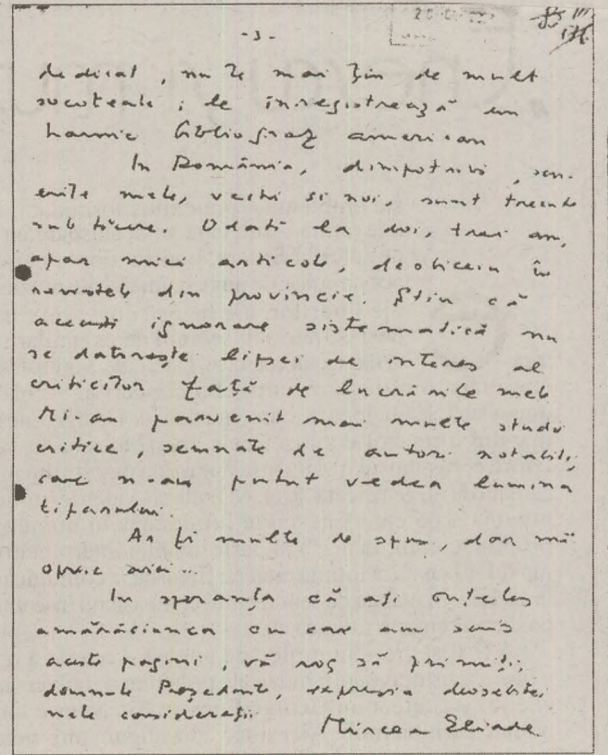 - 3 -
dedicat, nu le mai țin de mult
socoteala; le înregistrează un
harnic bibliograf american
In România, dimpotrivă, scri-
erile mele, vechi si noi, sunt trecute
sub tăcere. Odată la doi, trei ani,
apar mici articole, deobiceiu în
revistele din provincie. Știu că
această ignorare sistematică nu
se datorește lipsei de interes al
criticilor față de lucrările mele
Mi-au parvenit mai multe studii
critice, semnate de autori notabili,
care n-au putut vedea lumina
tiparului.
Ar fi multe de spus, dar mă
opresc aici...
In speranța că ați înțeles
amărăciunea cu care am scris
aceste pagini, vă rog să primiți,
domnule Președinte, expresia deosebitei
mele considerații
Mircea Eliade